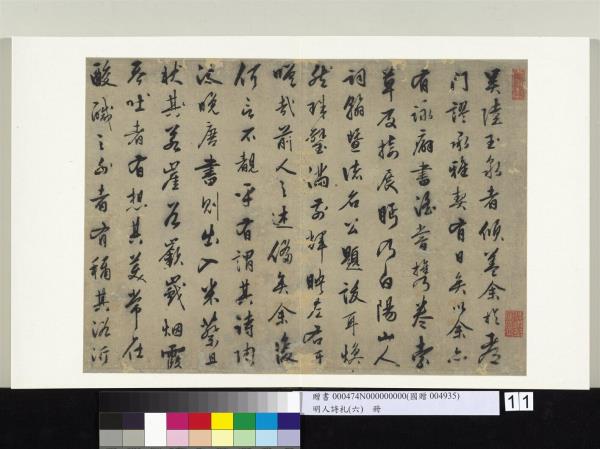 吳陸玉泉者傾蓋余於都
門謬承雅契有日矣以余亦
有詠癖書淫嘗攜卷索
草及接展眄乃白陽山人
詞翰暨諸名公題詠耳煥
然珠璧滿前輝映左右于
嗟哉前人之述備矣余復
何言不觀乎有謂其詩肉
深晚唐書則出入米蔡且
狀其若崖谷巖巖烟霞
吞吐者有想其美常在
酸鹹之外者有稱其浴沂
贈書 000474N000000000(國贈 004935)
明人詩札(六) 冊
11